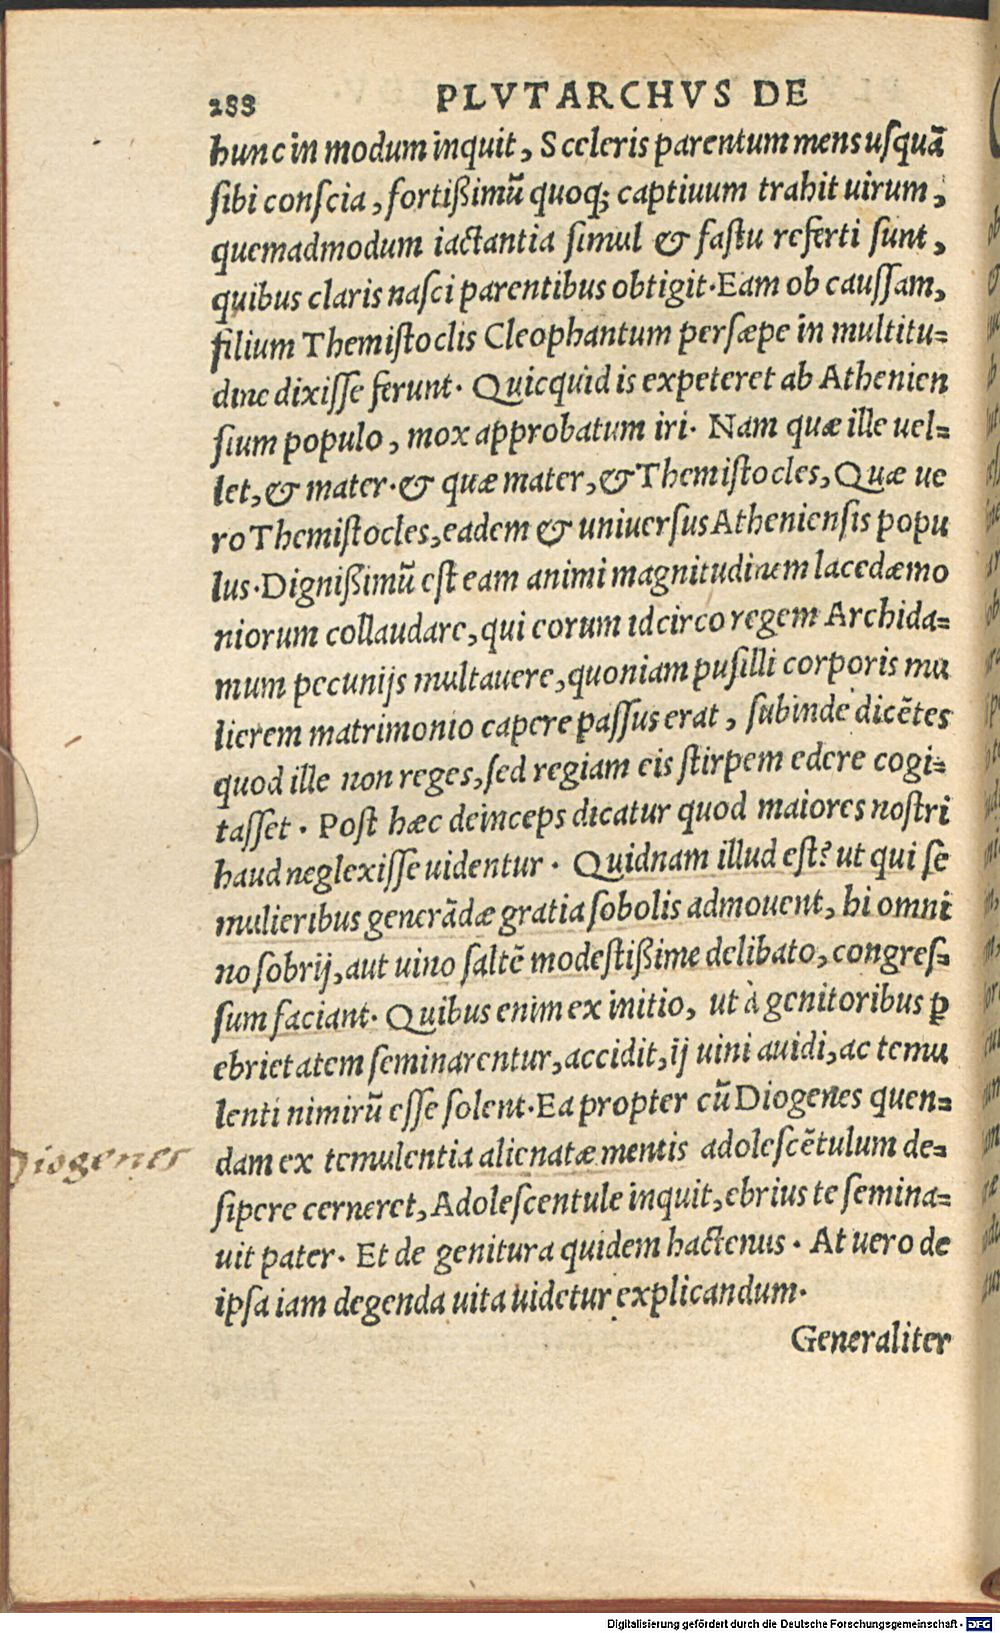 288 PLVTARCHVS DE
hunc in modum inquit, Sceleris parentum mens usquã
sibi conscia, fortißimũ quoq; captiuum trahit uirum,
quemadmodum iactantia simul & fastu referti sunt,
quibus claris nasci parentibus obtigit. Eam ob caussam,
filium Themistoclis Cleophantum persæpe in multitu=
dine dixisse ferunt. Quicquid is expeteret ab Athenien
sium populo, mox approbatum iri. Nam quæ ille uel=
let, & mater. & quæ mater, & Themistocles, Quæ ue
ro Themistocles, eadem & uniuersus Atheniensis popu
lus. Dignißimũ est eam animi magnitudinem lacedæmo
niorum collaudare, qui eorum idcirco regem Archida=
mum pecunijs multauere, quoniam pusilli corporis mu
lierem matrimonio capere passus erat, subinde dicẽtes
quod ille non reges, sed regiam eis stirpem edere cogi=
tasset. Post hæc deinceps dicatur quod maiores nostri
haud neglexisse uidentur. Quidnam illud est? ut qui se
mulieribus generãdæ gratia sobolis admouent, hi omni
no sobrij, aut uino saltẽ modestißime delibato, congres=
sum faciant. Quibus enim ex initio, ut à genitoribus ꝑ
ebrietatem seminarentur, accidit, ij uini auidi, ac temu
lenti nimirũ esse solent. Ea propter cũ Diogenes quen=
dam ex temulentia alienatæ mentis adolescẽtulum de=
sipere cerneret, Adolescentule inquit, ebrius te semina=
uit pater. Et de genitura quidem hactenus. At uero de
ipsa iam degenda uita uidetur explicandum.
Generaliter
Diogenes
Digitalisierung gefördert durch die Deutsche Forschungsgemeinschaft - DFG